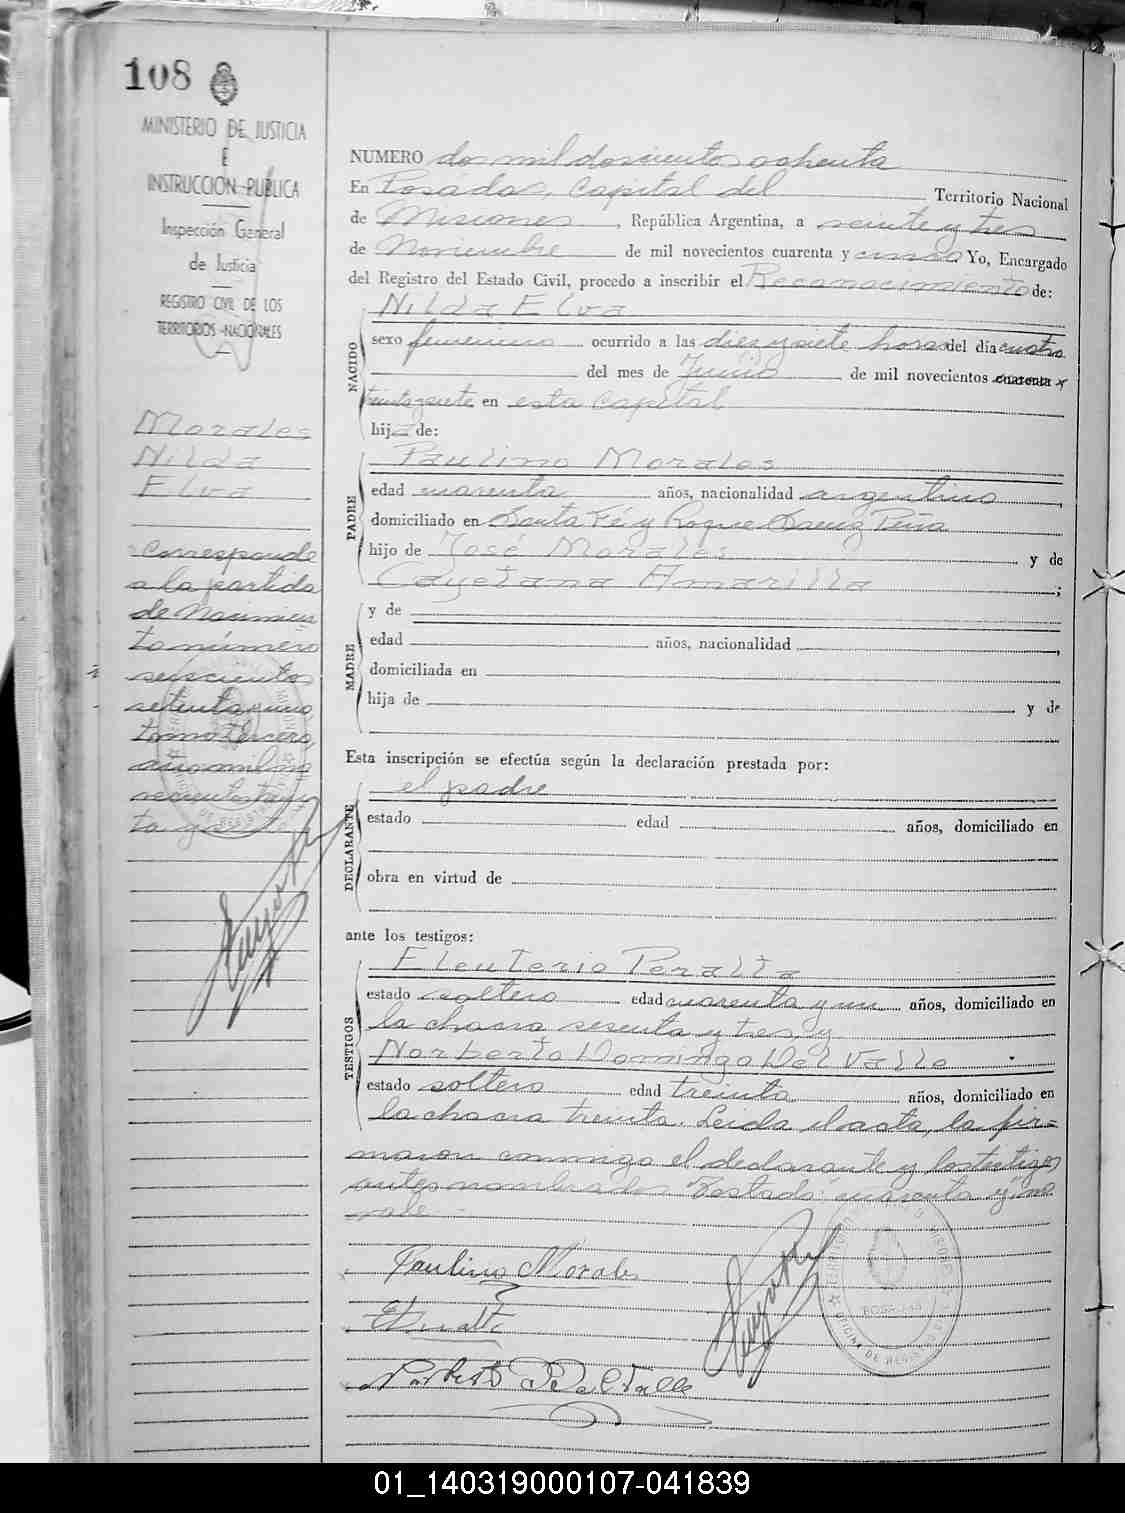 108
MINISTERIO DE JUSTICIA
E
INSTRUCCION PUBLICA
Inspección General
de Justicia
REGISTRO CIVIL DE LOS
TERRITORIOS NACIONALES
Morales
Nilda
Elva
Corresponde
a la partida
de Nacimien
to número
seiscientos
setenta y uno,
tomo tercero,
año mil no
vecientos trein
ta y siete
NUMERO dos mil doscientos ochenta
En Posadas, Capital del Territorio Nacional
de Misiones, República Argentina, a veinte y tres
de Noviembre de mil novecientos cuarenta y cinco Yo, Encargado
del Registro del Estado Civil, procedo a inscribir el Reconocimiento de:
NACIDO
Nilda Elva
sexo femenino ocurrido a las diez y siete horas del día cuatro
del mes de Junio de mil novecientos cuarenta y
treinta y siete en esta Capital
hija de:
PADRE
Paulino Morales
edad cuarenta años, nacionalidad argentino
domiciliado en Santa Fé y Roque Saenz Peña
hijo de José Morales y de
Cayetana Amarilla;
MADRE
y de
edad años, nacionalidad
domiciliada en
hija de y de
Esta inscripción se efectúa según la declaración prestada por:
DECLARANTE
el padre
estado edad años, domiciliado en
obra en virtud de
ante los testigos:
TESTIGOS
Eleuterio Peralta
estado soltero edad cuarenta y un años, domiciliado en
la chacra sesenta y tres, y
Norberto Domingo Del Valle
estado soltero edad treinta años, domiciliado en
la chacra treinta. Leida el acta, la fir=
maron conmigo el declarante y los testigos
antes nombrados. Testado: "cuarenta y", no
vale.
Paulino Morales
Norberto D Del Valle
01_140319000107-041839